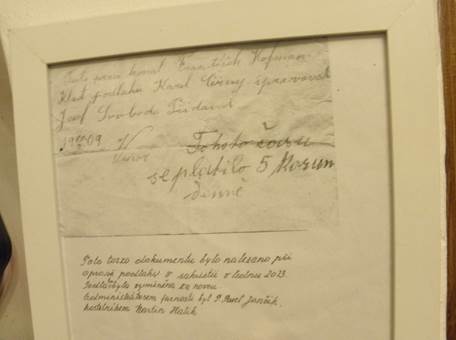 Tuto práci konal František Hofman
Klad podlahu Karel Černý spravovat
Josef Svoboda
19 09 Tohoto času
se platilo 5 Korun
denně
Toto torzo dokumentu bylo nalezeno při
opravě podlahy v sakristii v lednu 2023.
byla vyměněna za novou
Administrátorem farnosti byl P. Pavel Jančík,
kostelníkem Martin Halík